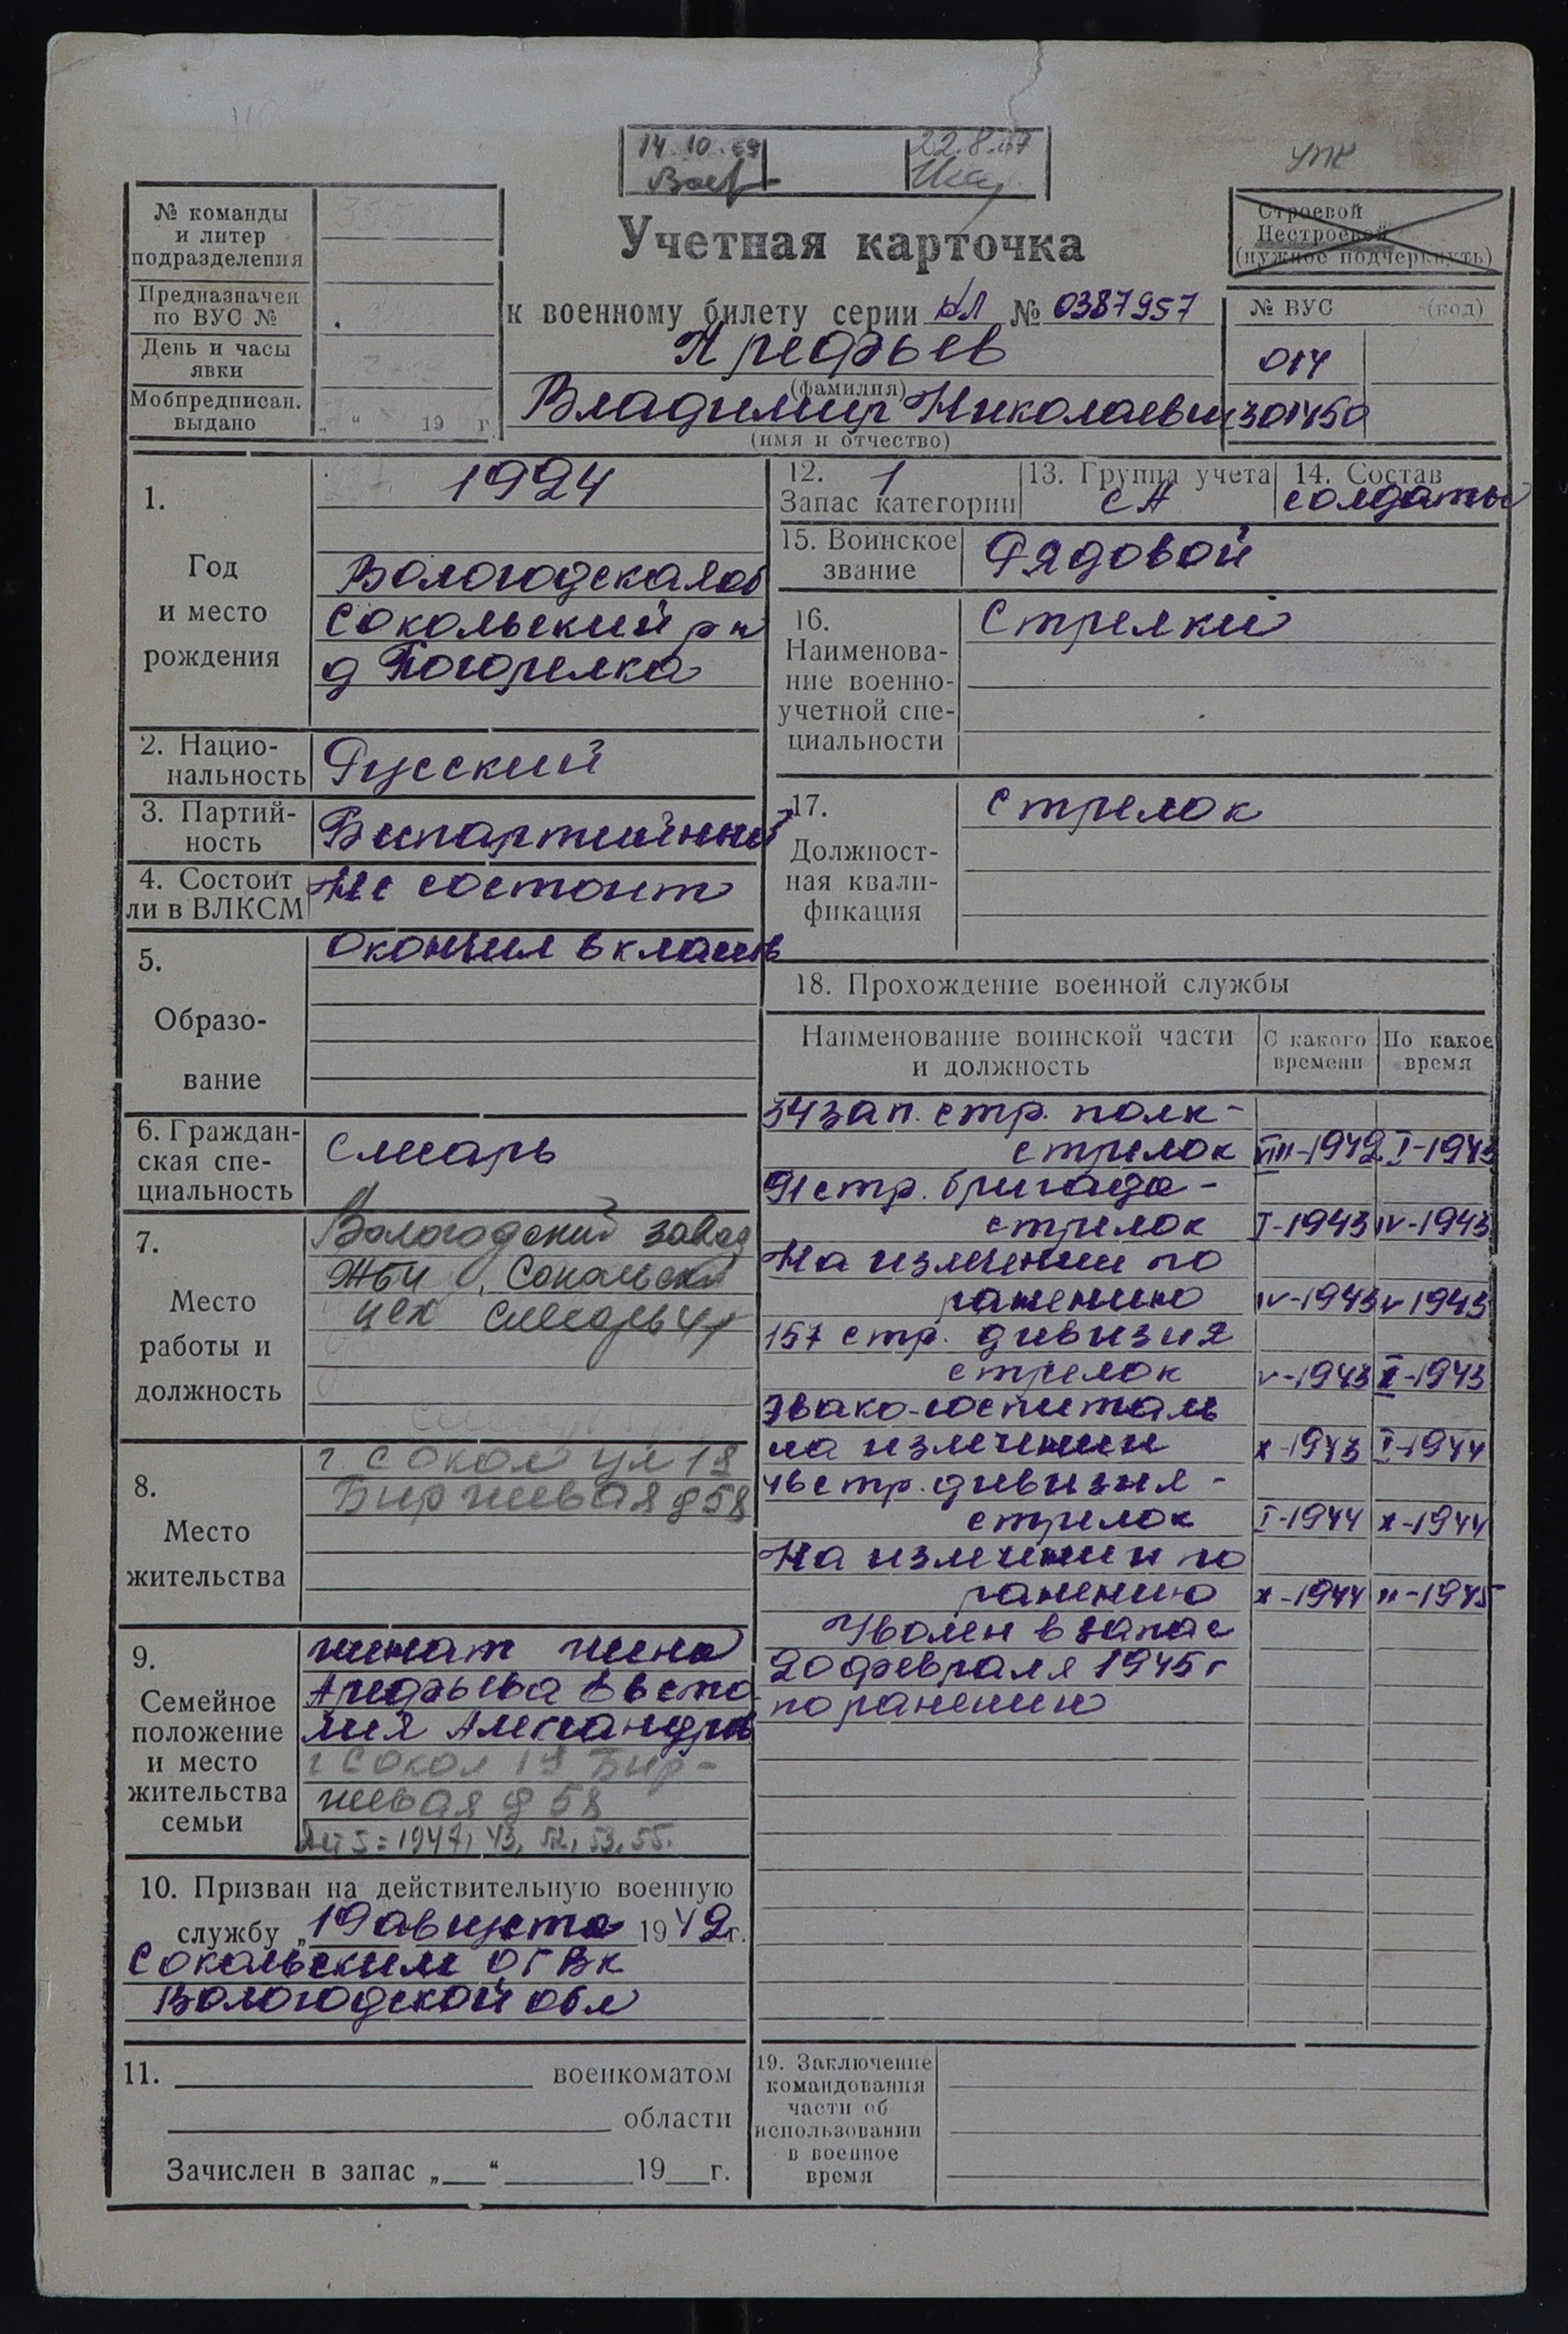 14.10.69
22.8.67
УПК
№ команды
и литер
подразделения
Предназначен
по ВУС №
День и часы
явки
Мобпредписан.
выдано
„ “ 19 г.
Учетная карточка
к военному билету серии № 0387957
Арефьев
(фамилия)
Владимир Николаевич
(имя и отчество)
Строевой
Нестроевой
(нужное подчеркнуть)
№ ВУС (код)
014
301450
1.
Год
и место
рождения
1924
Вологодская об
Сокольский р н
д Погорелка
2. Нацио-
нальность
Русский
3. Партий-
ность
Беспартийный
4. Состоит
ли в ВЛКСМ
Не состоит
5.
Образо-
вание
Окончил 6 классов
6. Граждан-
ская спе-
циальность
Слесарь
7.
Место
работы и
должность
Вологодский завод
ЖБИ, Сокольский
цех слесарь 4р
8.
Место
жительства
г Сокол ул 12
Биржевая д 58
9.
Семейное
положение
и место
жительства
семьи
женат жена
Арефьева Евсто
лия Александров
г Сокол 12 Бир-
жевая д 58
Дет 5 = 1947, 43, 52, 53, 55.
10. Призван на действительную военную
службу „19 августа 1942г.
Сокольским ОГВК
Вологодской обл
11. военкоматом
области
Зачислен в запас „ “ 19 г.
12. 1
Запас категории
13. Группа учета
СА
14. Состав
солдаты
15. Воинское
звание
Рядовой
16.
Наименова-
ние военно-
учетной спе-
циальности
Стрелки
17.
Должност-
ная квали-
фикация
Стрелок
18. Прохождение военной службы
Наименование воинской части
и должность
С какого
времени
По какое
время
34 зап. стр. полк -
стрелок VIII-1942 I-1943
91 стр. бригада -
стрелок I-1943 IV-1943
На излечении по
ранению IV-1943 V 1943
157 стр. дивизия
стрелок V-1943 X-1943
Эвако-госпиталь
на излечении X-1943 I-1944
46 стр. дивизия -
стрелок I-1944 X-1944
На излечении по
ранению X-1944 II-1945
Уволен в запас
20 февраля 1945 г
по ранению
19. Заключение
командования
части об
использовании
в военное
время